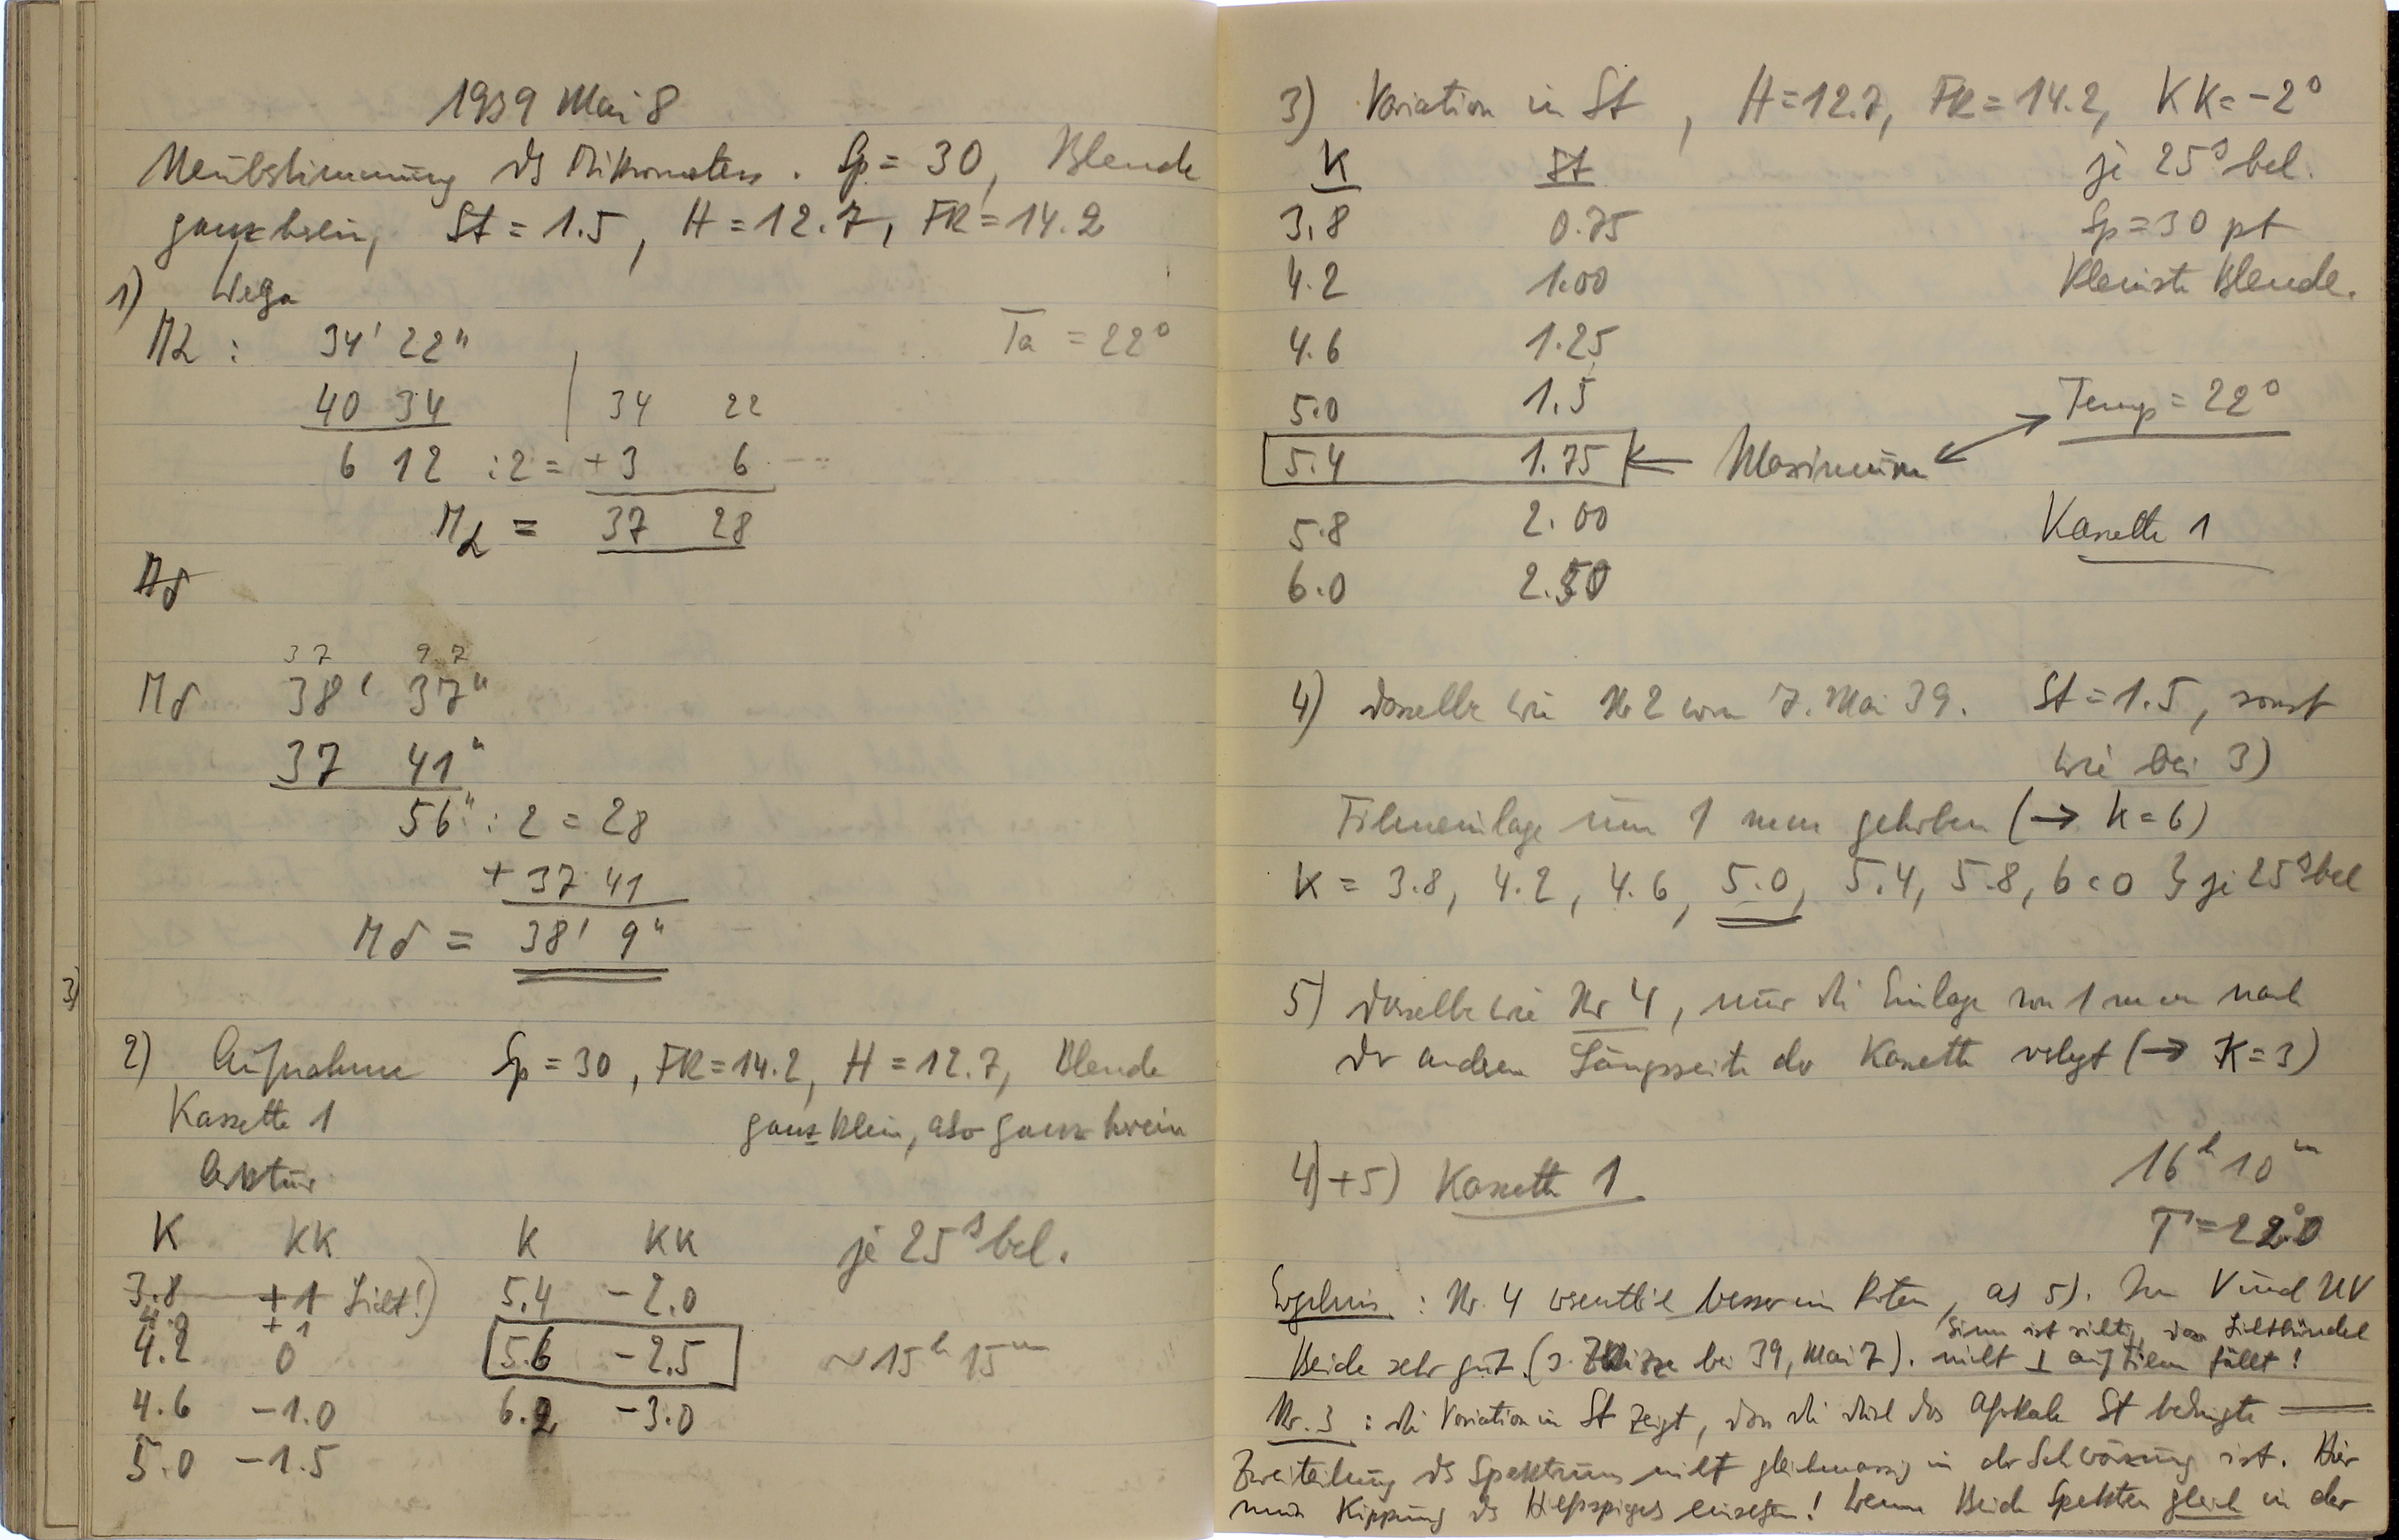 1939 Mai 8
Neubestimmung des Mikrometers. Sp = 30, Blende
ganz herein, St = 1.5, H = 12.7, FR = 14.2
1) Wega
Mα : 34' 22" Ta = 22°
40 34 | 34 22
6 12 : 2 = + 3 6
Mα = 37 28
Mδ
37 97
Mδ 38' 37"
37 41"
56" : 2 = 28
+ 37 41
Mδ = 38' 9"
3)
2) Aufnahme Sp = 30, FR = 14.2, H = 12.7, Blende
Kassette 1 ganz klein, also ganz herein
Arktur
K KK K KK je 25ˢ bel.
3.8 +1 Licht!) 5.4 -2.0
+1
4.2 0 5.6 -2.5 ~15ʰ 15ᵐ
4.6 -1.0 6.2 -3.0
5.0 -1.5
3) Variation in St, H = 12.7, FR = 14.2, KK = -2°
K St je 25ˢ bel.
3.8 0.75 Sp = 30 pt
4.2 1.00 Kleinste Blende.
4.6 1.25
5.0 1.5 Temp = 22°
5.4 1.75 ← Maximum
5.8 2.00 Kassette 1
6.0 2.50
4) dasselbe wie Nr 2 vom 7. Mai 39. St = 1.5, sonst
wie bei 3)
Filmeinlage um 1 mm gehoben (→ K = 6)
K = 3.8, 4.2, 4.6, 5.0, 5.4, 5.8, 6.0 } je 25ˢ bel
5) dasselbe wie Nr 4, nur die Einlage von 1 mm nach
der andren Längsseite der Kassette verlegt (→ K = 3)
4) + 5) Kassette 1 16ʰ 10ᵐ
T = 22°.0
Ergebnis : Nr. 4 wesentlich besser im Roten, als 5). Im V und UV
Sinn ist richtig, dass Lichtbündel
Beide sehr gut. (s. Skizze bei 39, Mai 7). nicht ⊥ auf Film fällt!
Nr. 3 : die Variation in St zeigt, dass die durch das afokale St bedingte
Zweiteilung des Spektrums nicht gleichmässig in der Schwärzung ist. Hier
muss Kippung des Hilfsspiegels einsetzen! Wenn Beide Spektren gleich in der